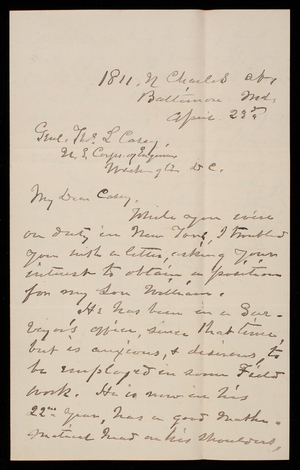 1811. N Charles St,
Baltimore Md.
April 23rd
Genl. Thos. L Casey,
U. S. Corps. of Engineers
Washington D C.
My Dear Casey.
While you were
on duty in New York, I troubled
you with a letter, asking your
interest to obtain a position
for my Son William.
He has been in a Sur-
veyor's office, since that time
but is anxious, & desirous, to
be employed in some Field
work. He is now in his
22nd Year, has a good Mathe-
matical head on his shoulders,